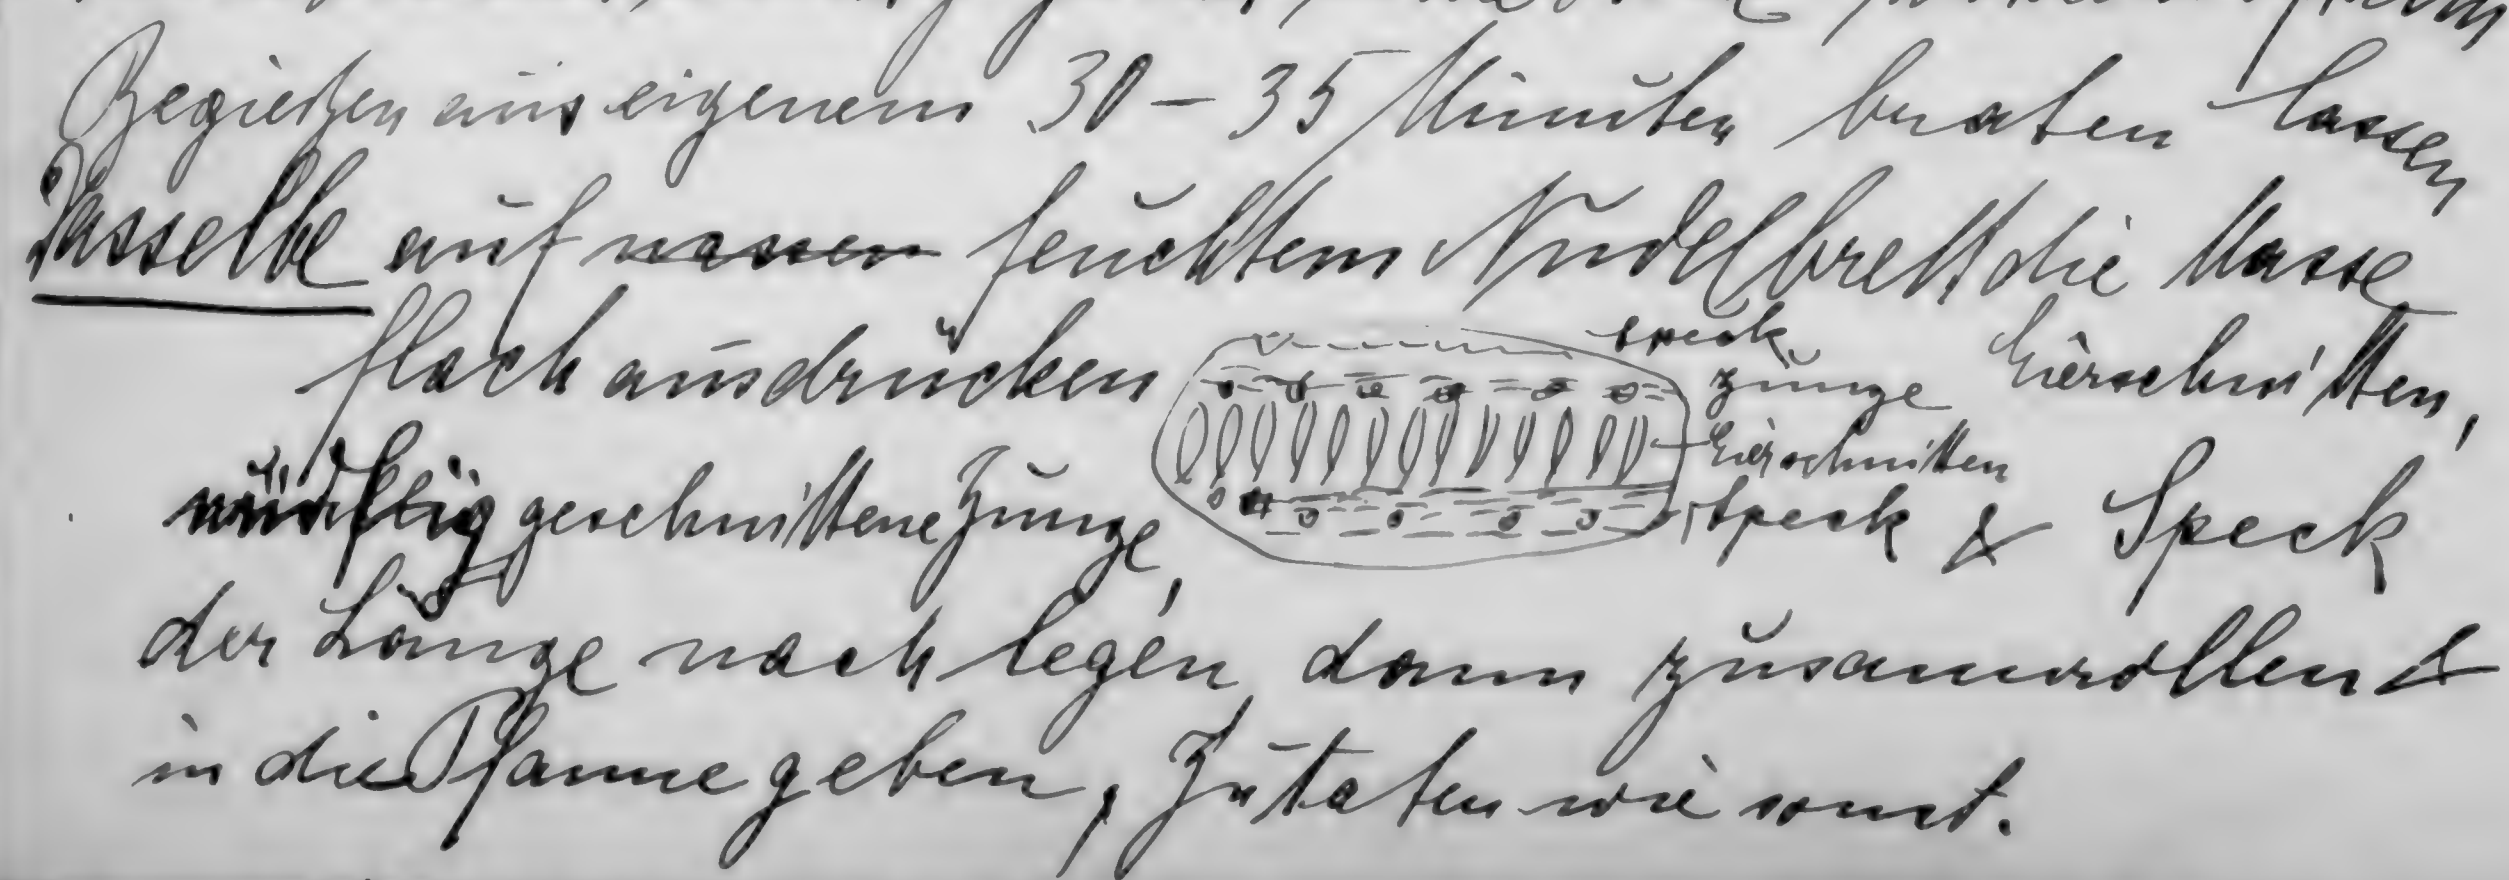 Begießen aus eigenem 30 – 35 Minuten braten lassen
Dasselbe auf nassen feuchtem Nudelbrett die Masse
flach ausdrücken
speck
zunge
Eierschnitten
speck
Eierschnitten,
nudlig geschnittene Zunge, & Speck
der Länge nach legen dann zusamrollen &
in die Pfanne geben, Zutaten wie sonst.